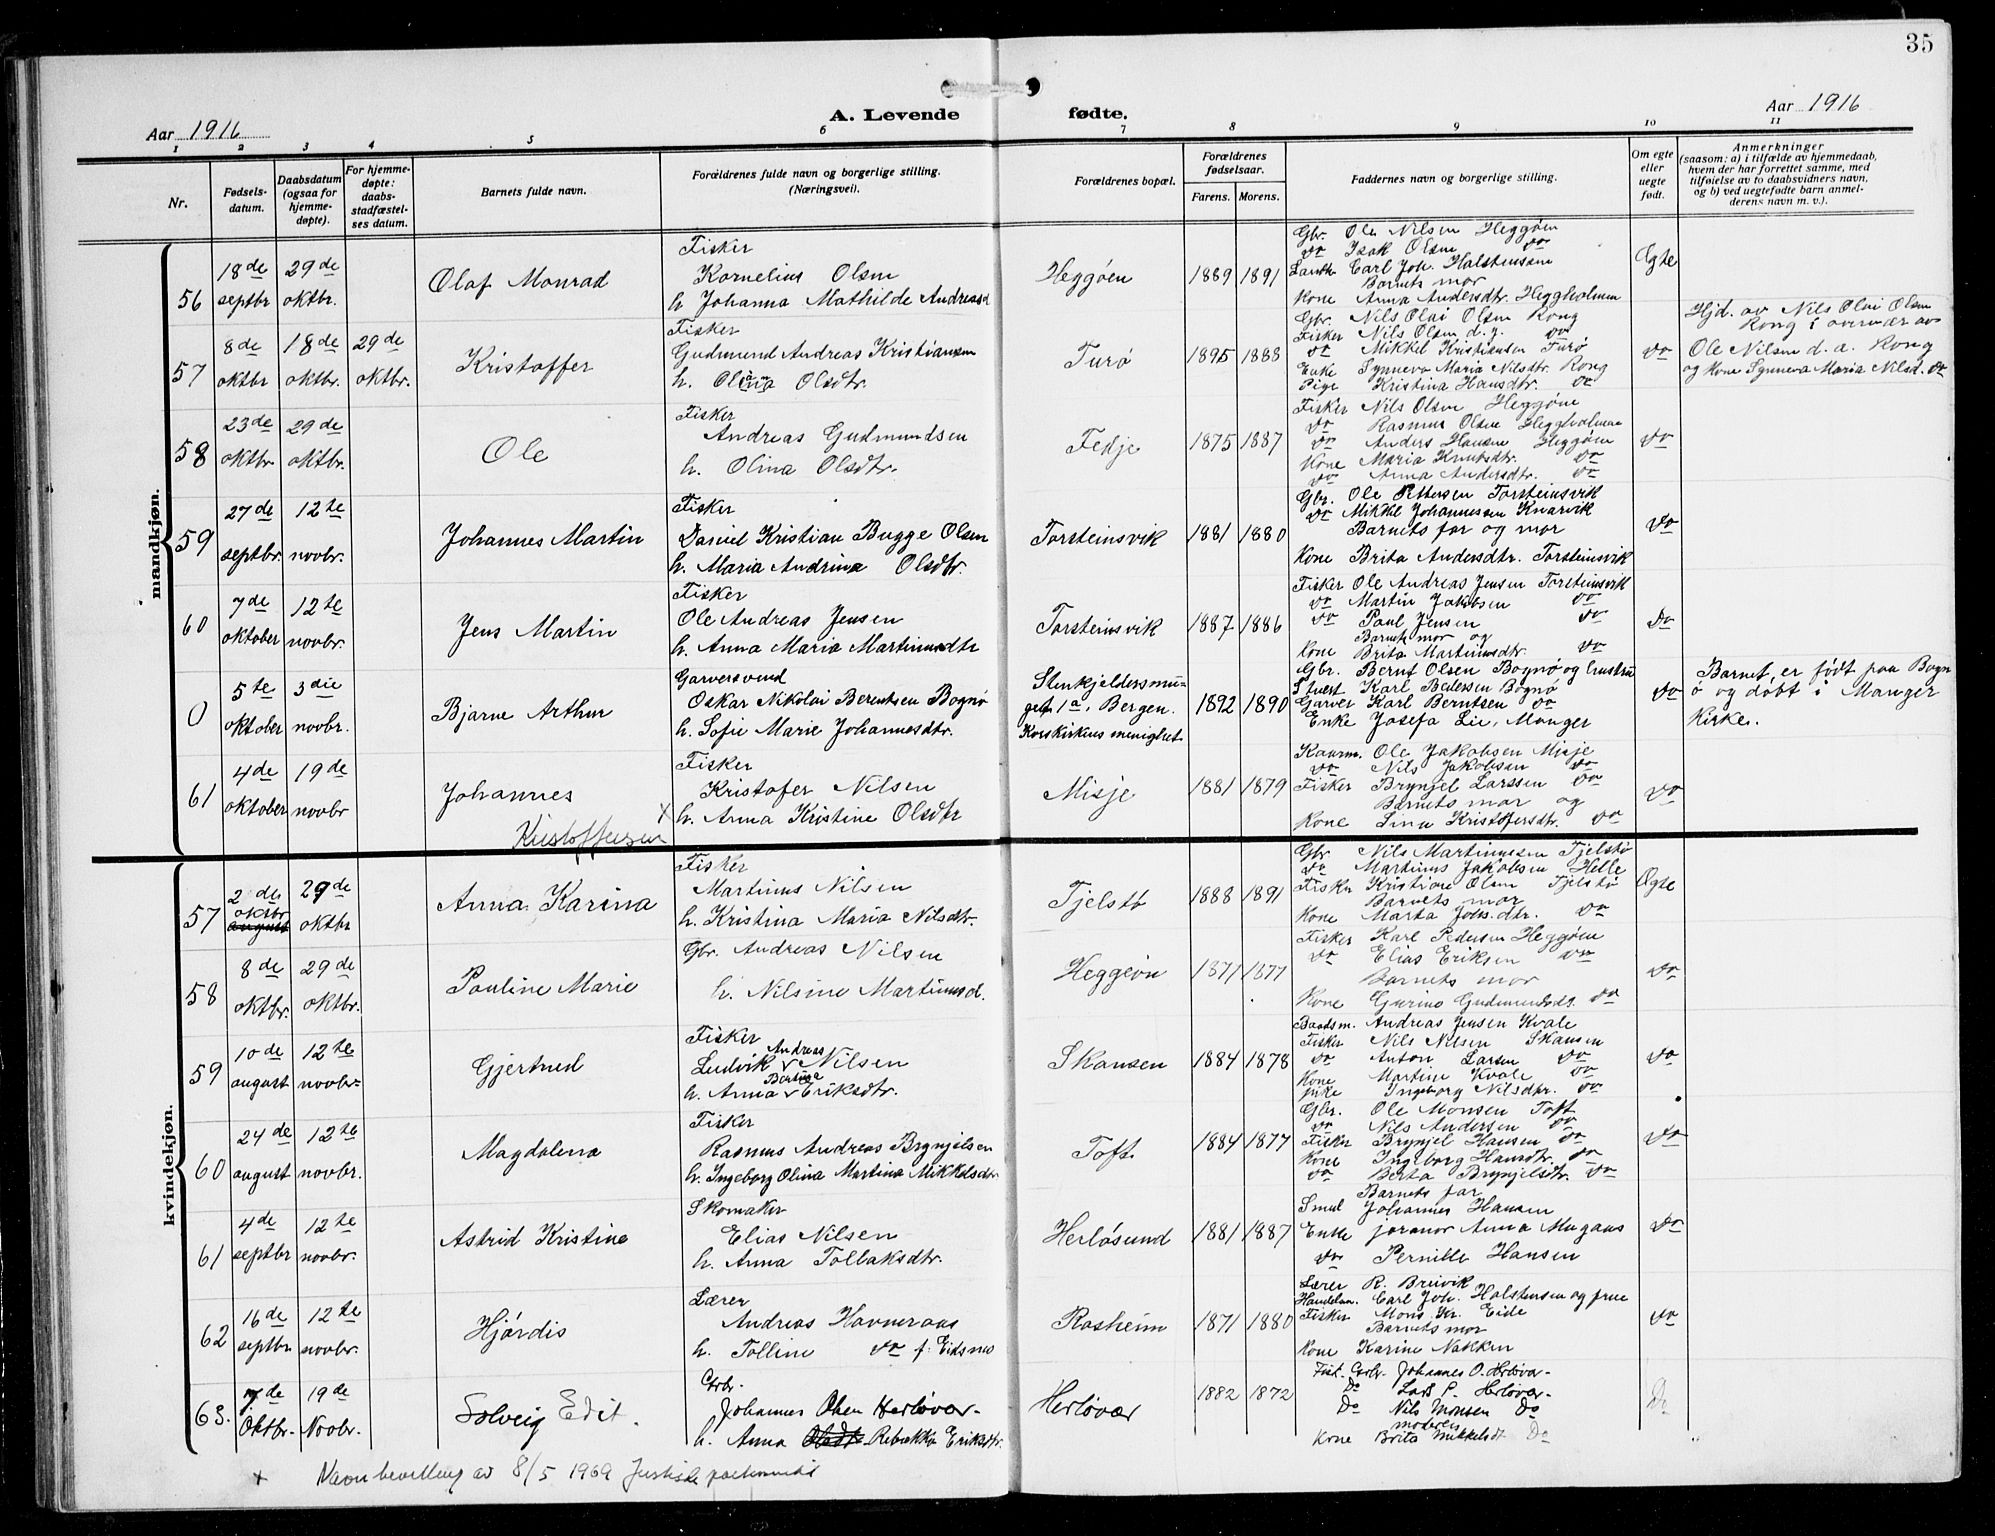 35
A. Levende fødte.
Aar 1916
Aar 1916
1 2 3 4 5 6 7 8 9 10 11
Nr.
Fødsels-
datum.
Daabsdatum
(ogsaa for
hjemme-
døpte).
For hjemme-
døpte:
daabs-
stadfæstel-
ses datum.
Barnets fulde navn.
Forældrenes fulde navn og borgerlige stilling.
(Næringsvei).
Forældrenes bopæl.
Forældrenes
fødselsaar.
Farens. Morens.
Faddernes navn og borgerlige stilling.
Om egte
eller
uegte
født.
Anmerkninger
(saasom: a) i tilfælde av hjemmedaab,
hvem der har forrettet samme, med
tilføielse av to daabsvidners navn,
og b) ved uegtefødte barn anmel-
derens navn m. v.).
mandkjøn.
56
18de septbr
29de oktbr.
Olaf Monrad
Fisker
Kornelius Olsen
h. Johanna Mathilde Andreasd
Heggøen
1889 1891
Gbr. Ole Nilsen Heggøen
do Isak Olsen do
Landh. Carl Joh. Halstensen
Barnets mor
Kone Anna Andersdtr. Heggholmen
Egte
57
8de oktbr
18de oktbr.
29de oktbr.
Kristoffer
Fisker
Gudmund Andreas Kristiansen
h. Olina Olsdtr.
Turø
1895 1888
Gbr. Nils Olai Olsen Rong
Fisker Nils Olsen d.y. do
do Mikkel Kristiansen Turø
Enke Synneva Maria Nilsdtr. Rong
Pige Kristina Hansdtr. do
do
Hjd. av Nils Olai Olsen
Rong i overvær av
Ole Nilsen d. a. Rong
og Kone Synneva Maria Nilsd. do
58
23de oktbr
29de oktbr.
Ole
Fisker
Andreas Gudmundsen
h. Olina Olsdtr.
Fedje
1875 1887
Fisker Nils Olsen Heggøen
do Rasmus Olsen Heggholmen
do Anders Hansen Heggøen
Kone Maria Knutsdtr. do
do Anna Andersdtr. do
do
59
27de septbr.
12te novbr.
Johannes Martin
Fisker
Daniel Kristian Bugge Olsen
h. Maria Andrina Olsdtr.
Torsteinsvik
1881 1880
Gbr. Ole Pettersen Torsteinsvik
do Mikkel Johannessen Knarvik
Barnets far og mor
Kone Brita Andersdtr. Torsteinsvik
do
60
7de oktober
12te novbr.
Jens Martin
Fisker
Ole Andreas Jensen
h. Anna Maria Martinusdtr
Torsteinsvik
1887 1886
Fisker Ole Andreas Jensen Torsteinsvik
do Martin Jakobsen do
do Paul Jensen do
Barnets mor og
Kone Brita Martinusdtr. do
Do
0
5te oktober
3die novbr.
Bjarne Arthur
Garversvend
Oskar Nikolai Berentsen Bognø
h. Sofie Marie Johannesdtr.
Stenkjeldersmu-
get 1a, Bergen.
Korskirkens menighet
1892 1890
Gbr. Bernt Olsen Bognø og hustru
Karl Bognø
Garver Karl Berntsen do
Enke Josefa Lie, Manger
do
Barnet er født paa Bogn
ø og døbt i Manger
Kirke.
61
4de oktober
19de novbr
Johannes
Kristoffersen x
Fisker
Kristofer Nilsen
h. Anna Kristine Olsdtr
Misje
1881 1879
Kaarm. Ole Jakobsen Misje
do Nils Jakobsen do
Fisker Brynjel Larssen do
Barnets mor og
Kone Lina Kristofersdtr. do
do
kvindekjøn.
57
2de oktbr
august
29de oktbr
Anna Karina
Fisker
Martinus Nilsen
h. Kristina Maria Nilsdtr.
Tjelstø
1888 1891
Gbr Nils Martinussen Tjelstø
do Martinus Jakobsen Helle
Fisker Kristian Olsen Tjelstø
Barnets mor
Kone Marta Johs.dtr. do
Egte
58
8de oktbr.
29de oktbr.
Pauline Marie
Gbr. Andreas Nilsen
h. Nilsine Martinusd.
Heggøen
1871 1877
Fisker Karl Pedersen Heggøen
do Elias Eriksen do
Barnets mor
Kone Gurine Gudmundsdt. do
do
59
10de august
12te novbr.
Gjertrud
Fisker
Andreas
Ludvik Nilsen
Bertina
h. Anna Eriksdtr.
Skansen
1884 1878
Baadsm. Andreas Jensen Kvale
Fisker Nils Nilsen Skansen
do Anton Larsen do
Kone Martine Kvale do
pike Ingeborg Nilsdtr. do
do
60
24de august
12te novbr.
Magdalena
Fisker
Rasmus Andreas Brynjelsen
h. Ingeborg Olina Martina Mikkelsdtr
Toft
1884 1877
Gbr. Ole Monsen Toft
do Nils Andersen do
Fisker Brynjel Hansen do
Kone Ingeborg Hansdtr. do
do Berta Brynjelsdtr. do
do
61
4de septbr
12te novbr.
Astrid Kristine
Skomaker
Elias Nilsen
h. Anna Tollaksdtr.
Herløsund
1881 1887
Barnets far
Smed Johannes Hansen
Enke joranor Anna Mugaas
do Pernille Hansen
do
62
16de septbr
12te novbr.
Hjørdis
Lærer
Andreas Havneraas
h. Tolline do f. Eidsnes
Rosheim
1871 1880
Lærer R. Breivik
Handelsm. Carl Joh. Halstensen og frue
Fisker Mons Kr. Eide
Barnets mor
Kone Karine Nakken
do
63.
7de Oktbr.
19de Novbr.
Solveig Edit.
Grbr.
Johannes Olsen Herløvær
h. Anna Olsdtr Rebekka Eriksdtr.
Herløvær
1882 1872
Fisk. Grbr. Johannes O. Herløvær
Do Lars P. Herløver
Do Nils Monsen Do
moderen
Kone Brita Mikkelsdt Do
Do
x Navnbevilling av 8/5 1969 Justisdepartementet